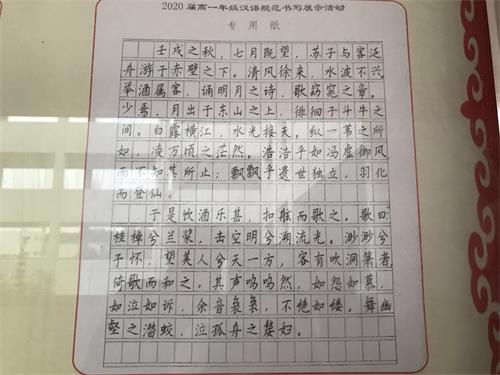 2020届高一年级汉语规范书写展示活动
专用纸
壬戌之秋，七月既望，苏子与客泛
舟游于赤壁之下。清风徐来，水波不兴。
举酒属客，诵明月之诗，歌窈窕之章。
少焉，月出于东山之上，徘徊于斗牛之
间。白露横江，水光接天。纵一苇之所
如，凌万顷之茫然。浩浩乎如冯虚御风
而不知其所止；飘飘乎遗世独立，羽化
而登仙。
于是饮酒乐甚，扣舷而歌之。歌曰
桂棹兮兰桨，击空明兮溯流光。渺渺兮
予怀，望美人兮天一方，客有吹洞箫者，
倚歌而和之。其声呜呜然，如怨如慕，
如泣如诉，余音袅袅，不绝如缕。舞幽
壑之潜蛟，泣孤舟之嫠妇。